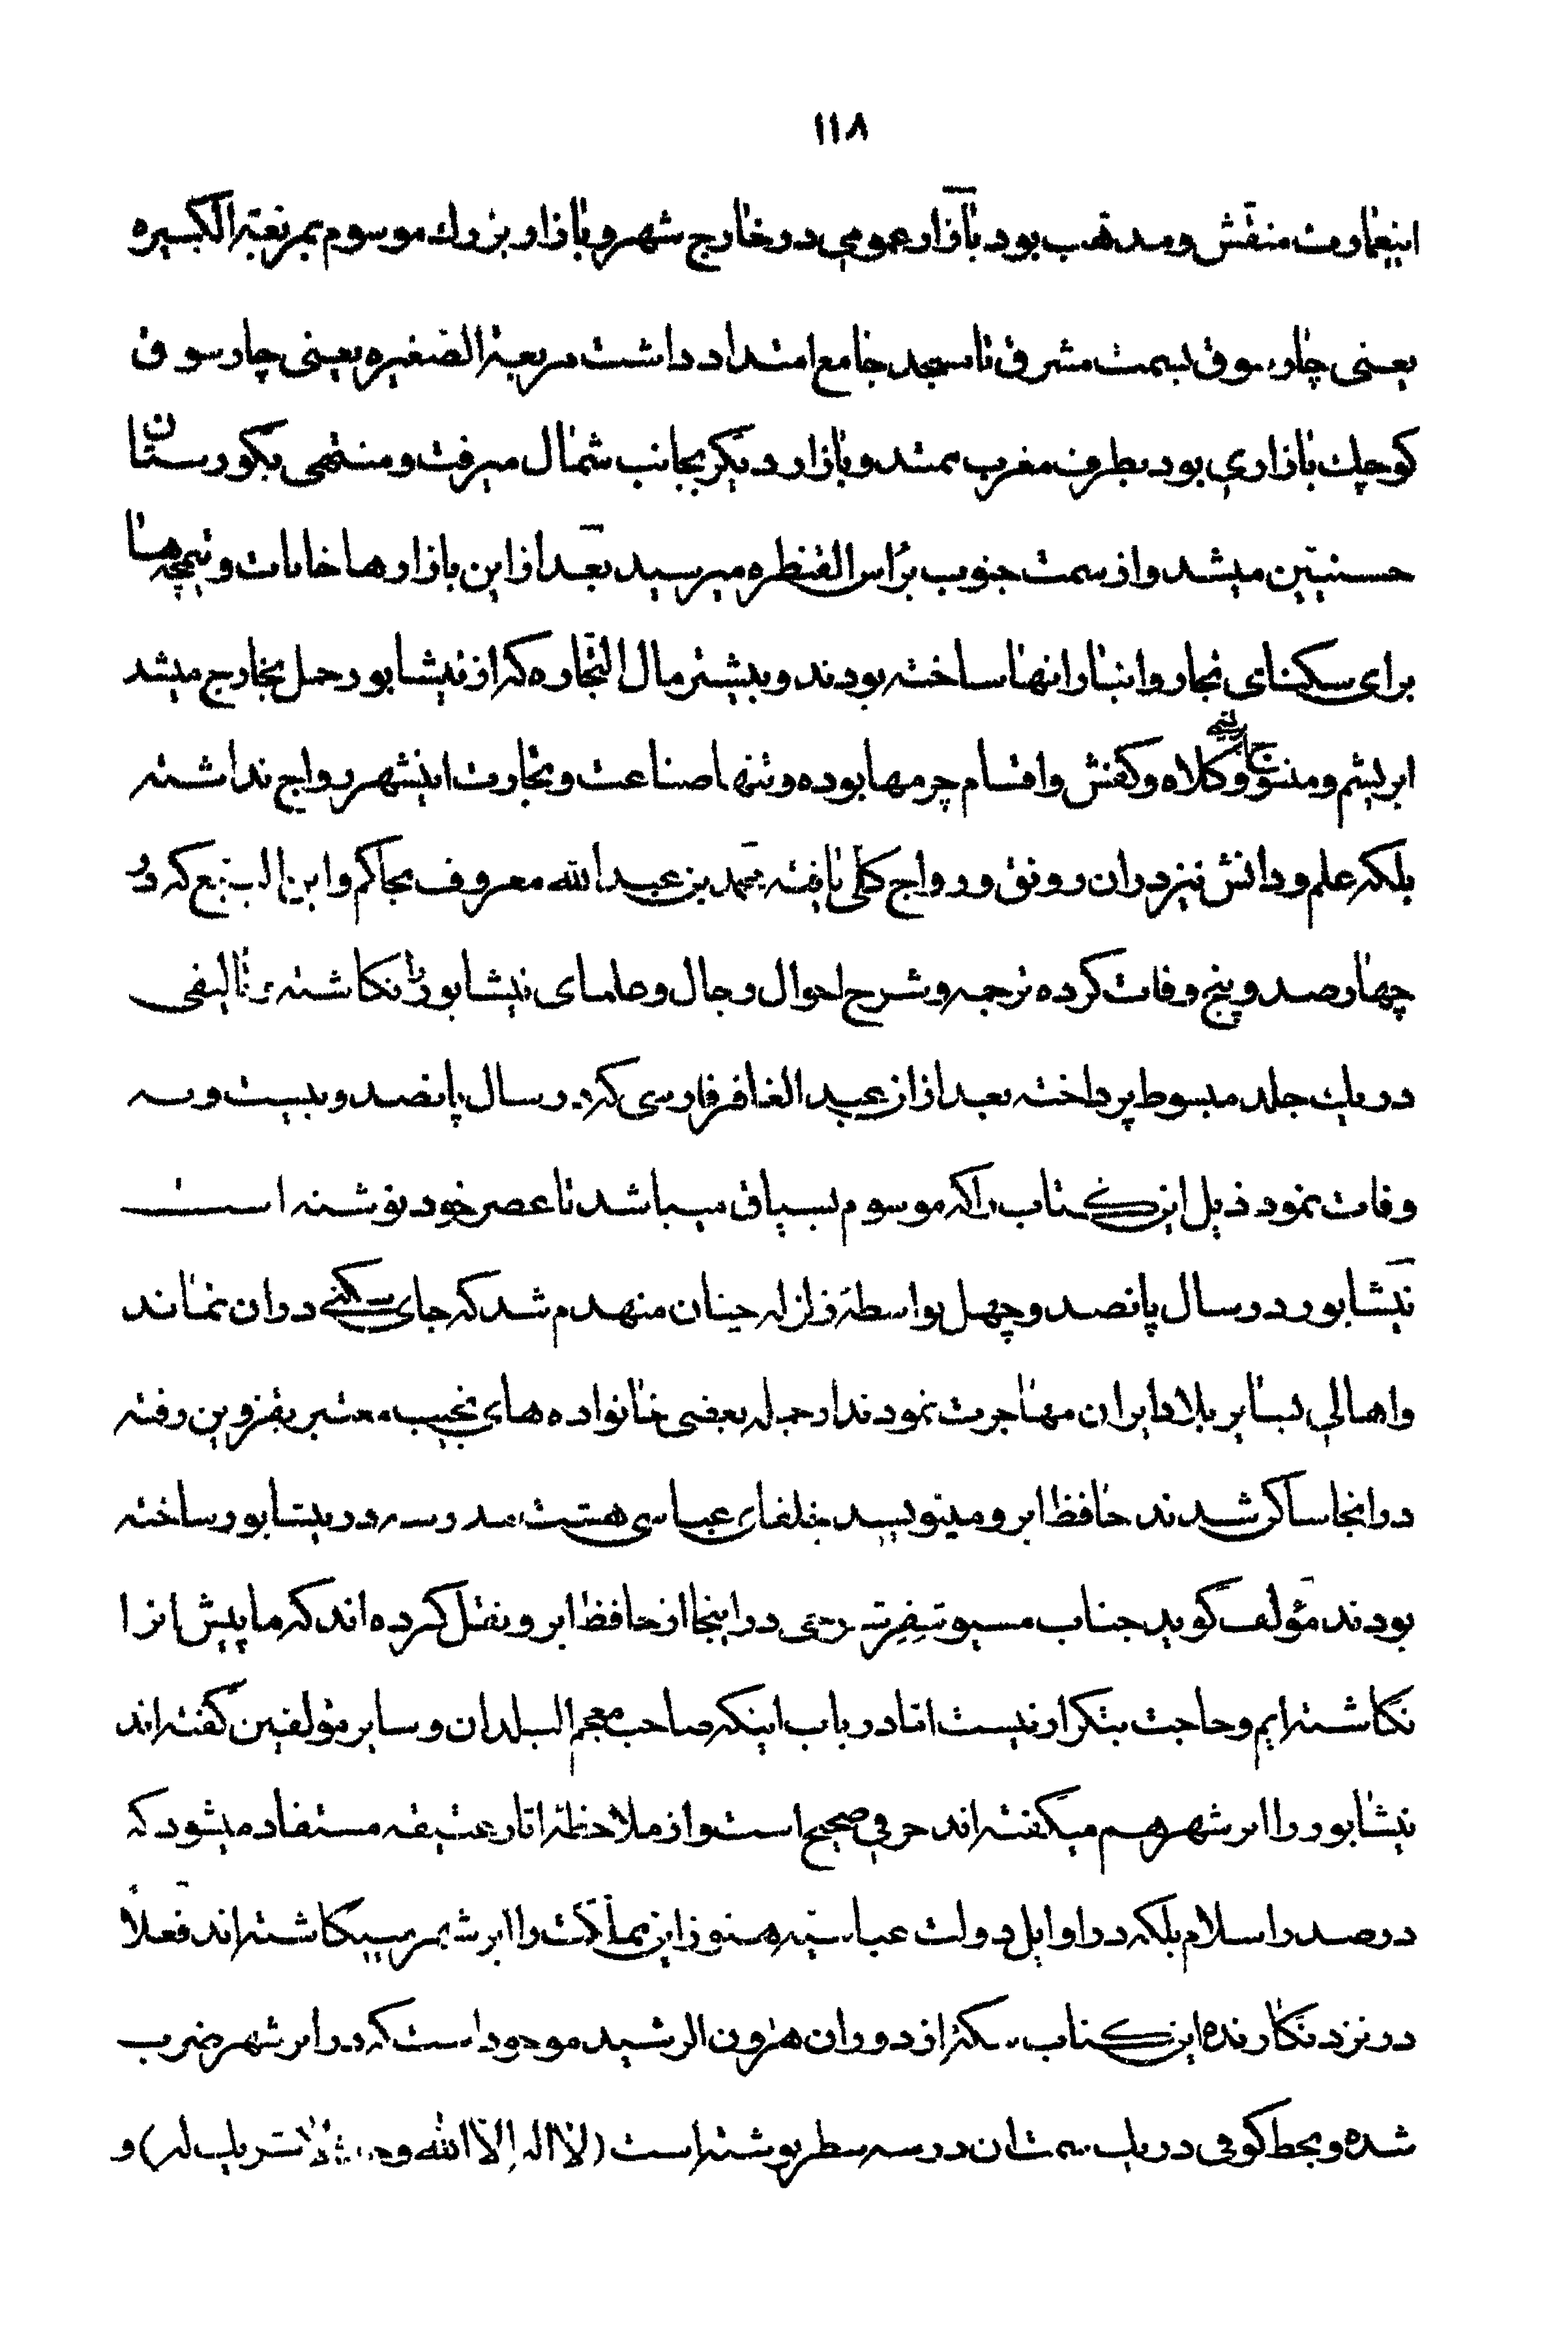 ۱۱۸
اینعمارت منقش و مذهب بود بازار عمومی در خارج شهر و بازار بزرك موسوم بمربعة الکبیره
یعنی چارسوق بسمت مشرق تا مسجد جامع امتداد داشت مربعة الصغیره یعنی چارسوق
کوچك بازاری بود بطرف مغرب ممتد و بازار دیکر بجانب شمال میرفت و منتهی بکورستان
حسنیین میشد و از سمت جنوب برأس القنطره میرسید بعد از این بازارها خانات و تیمچه‌ها
برای سکنای تجار و انبار انها ساخته بودند و بیشتر مال التجاره که از نیشابور حمل بخارج میشد
ابریشم و منسوجات و کلاه و کفش و اقسام چرمها بوده و تنها صناعت و تجارت اینشهر رواج نداشته
بلکه علم و دانش نیز در ان رونق و رواج کلی یافته محمد بن عبد الله معروف بحاکم و ابن البیع که در
چهارصد و پنج وفات کرده ترجمه و شرح احوال رجال و علمای نیشابور را نکاشته تالیفی
در یك جلد مبسوط پرداخته بعد از ان عبد الغافر فارسی که در سال پانصد و بیست و سه
وفات نمود ذیل این کتاب را که موسوم بسیاق میباشد تا عصر خود نوشته است
نیشابور در سال پانصد و چهل بواسطهٔ زلزله چنان منهدم شد که جای سکنی در ان نماند
و اهالی بسایر بلاد ایران مهاجرت نمودند از جمله بعضی خانواده‌های نجیب معتبر بقزوین رفته
در انجا ساکن شدند حافظ ابرو مینویسد خلفای عباسی هشت مدرسه در نیشابور ساخته
بودند مؤلف کوید جناب مسیو شفر شرحی در اینجا از حافظ ابرو نقل کرده‌اند که ما پیش انرا
نکاشته‌ایم و حاجت بتکرار نیست اما در باب اینکه صاحب معجم البلدان و سایر مؤلفین کفته‌اند
نیشابور را ابرشهر هم میکفته‌اند حرفی صحیح است و از ملاحظهٔ اثار عتیقه مستفاد میشود که
در صدر اسلام بلکه در اوایل دولت عباسیه هنوز این مملکت را ابرشهر مینکاشته‌اند فعلاً
در نزد نکارنده این کتاب سکهٔ از دوران هرون الرشید موجود است که در ابرشهر ضرب
شده و بخط کوفی در یك سمت ان در سه سطر نوشته است (لا اله الا الله وحده لا شریك له) و